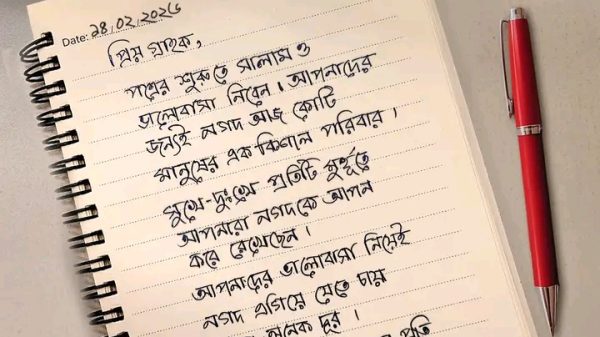 Date: ২৪.০২.২০২৬
প্রিয় গ্রাহক,
পত্রের শুরুতে সালাম ও
ভালোবাসা নিবেন। আপনাদের
জন্যই নগদ আজ কোটি
মানুষের এক বিশাল পরিবার।
সুখে-দুঃখে প্রতিটি মুহূর্তে
আপনারা নগদকে আপন
করে রেখেছেন।
আপনাদের ভালোবাসা নিয়েই
নগদ এগিয়ে যেতে চায়
অনেক দূর।
প্রতি